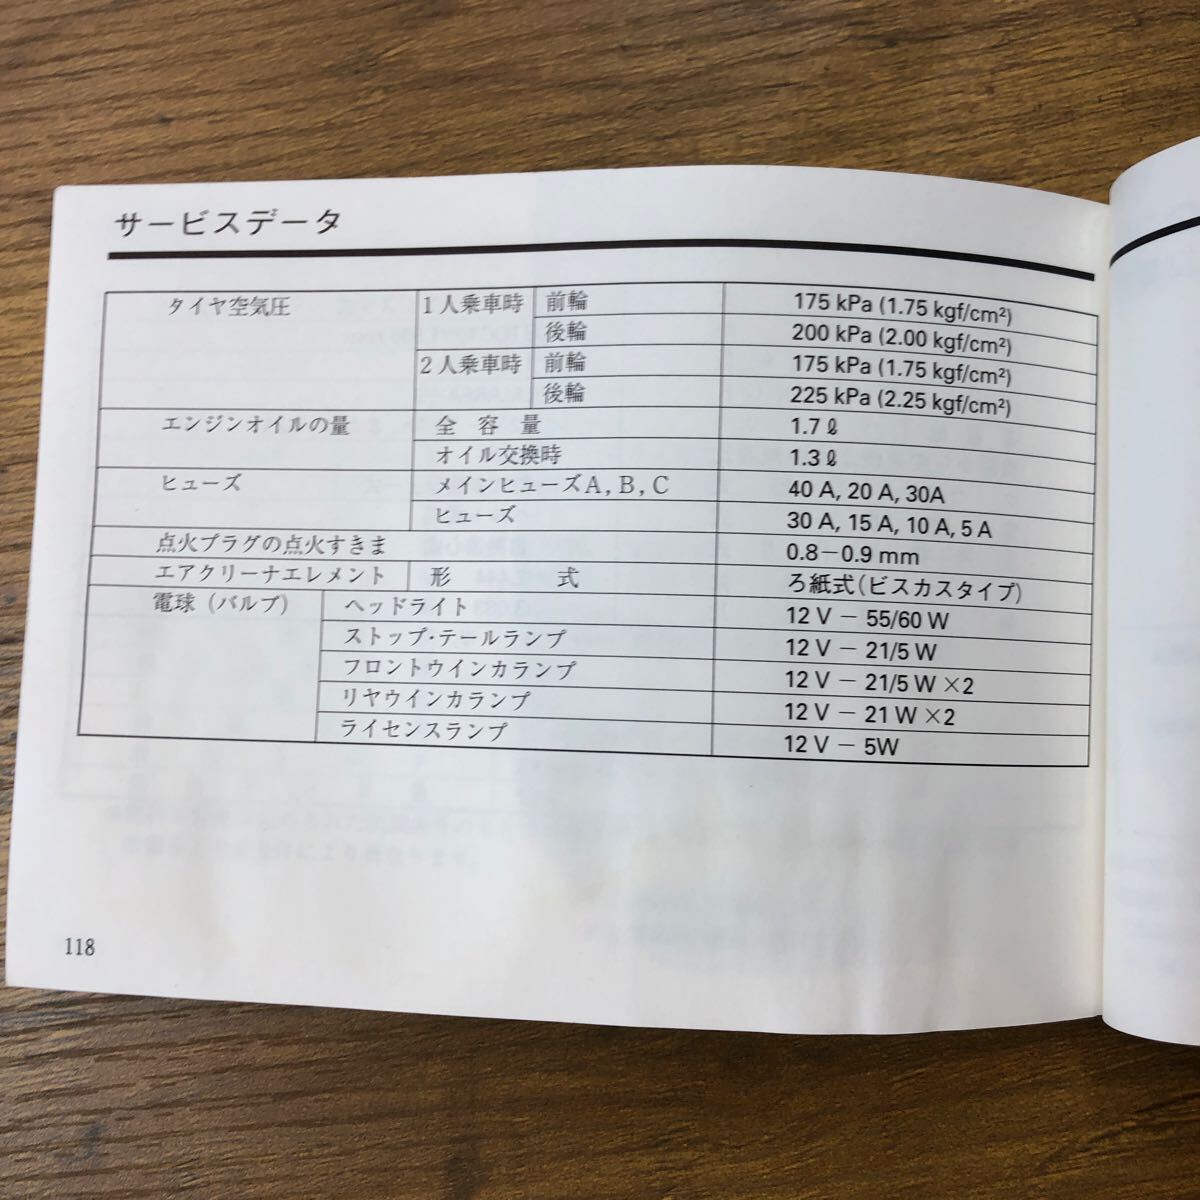 サービスデータ
タイヤ空気圧 1人乗車時 前輪 175 kPa (1.75 kgf/cm²)
後輪 200 kPa (2.00 kgf/cm²)
2人乗車時 前輪 175 kPa (1.75 kgf/cm²)
後輪 225 kPa (2.25 kgf/cm²)
エンジンオイルの量 全容量 1.7ℓ
オイル交換時 1.3ℓ
ヒューズ メインヒューズA, B, C 40 A, 20 A, 30A
ヒューズ 30 A, 15 A, 10 A, 5 A
点火プラグの点火すきま 0.8－0.9 mm
エアクリーナエレメント 形式 ろ紙式(ビスカスタイプ)
電球（バルブ） ヘッドライト 12 V － 55/60 W
ストップ・テールランプ 12 V － 21/5 W
フロントウインカランプ 12 V － 21/5 W ×2
リヤウインカランプ 12 V － 21 W ×2
ライセンスランプ 12 V － 5W
118